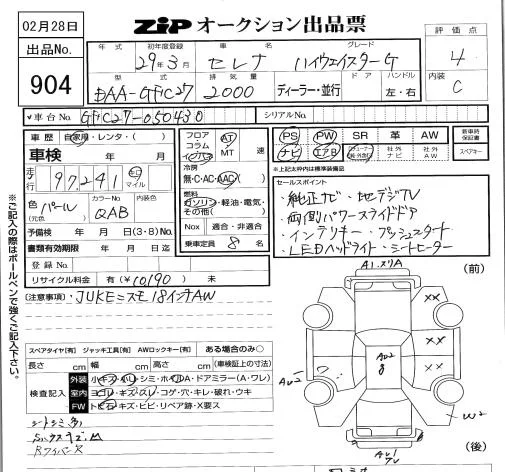 02月28日
ZiP オークション出品票
出品No.
904
評価点
4
内装
C
年式 初年度登録 車名 グレード
29年3月 セレナ ハイウェイスターG
型式 排気量 ドア ハンドル
DAA-GFNC27 2000 ディーラー・並行 左・右
車台No. GFNC27-050430 シリアルNo.
車歴 自家用・レンタ・( )
車検 年 月
走行 97241 キロ マイル
色 パール
(元色)
カラーNo. QAB
内装色
予備検 年 月 日(3・8)No.
書類有効期限 年 月 日迄
登録No.
リサイクル料金 有(¥10,190) 未
フロア コラム インパネ AT MT 速
冷房 無・C・AC・AAC・( )
燃料 ガソリン・軽油・電気・その他( )
Nox 適合・非適合
乗車定員 8 名
PS PW SR 革 AW
ナビ エアB 社外ナビ 社外AW
新車時保証書
スペアキー
※上記太枠内は標準装備記
セールスポイント
・純正ナビ・地デジTV
・両側パワースライドドア
・インテリキー・プッシュスタート
・LEDヘッドライト・シートヒーター
(注意事項) JUKEニスモ18インチAW
※ご記入の際はボールペンで強くご記入下さい。
スペアタイヤ(有) ジャッキ工具(有) AWロックキー(有) ある場合のみ○
長さ cm 幅 cm 高さ cm (車検証上の寸法)
検査記入
外装 小キズ・小凹・シミ・ホイルA・ドアミラー(A・ワレ)
室内 ヨゴレ・キズ・スレ・コゲ・穴・キレ・破れ・ウキ
FW トビ石・キズ・ヒビ・リペア跡・X要ス
シートシミ
RワイパーX
(前)
XX
XX
AU2
W2
(後)